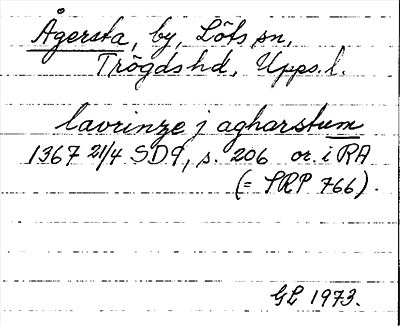 Ågersta, by, Löts sn,
Trögds hd, Upps. l.
lavrinze j agharstum
1367 21/4 SD 9, s. 206 or. i RA
(= SRP 766).
GL 1973.